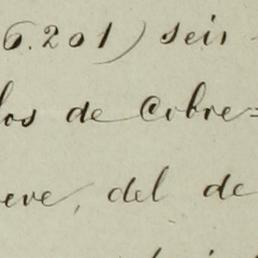 6.201) seis
los de Cobre=
eve, del de